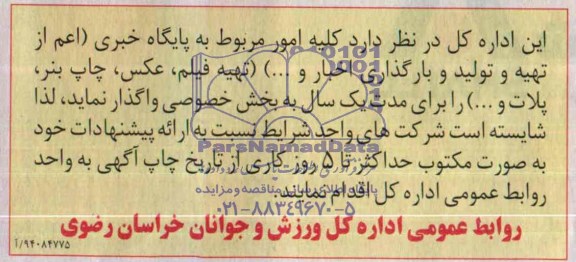 این اداره کل در نظر دارد کلیه امور مربوط به پایگاه خبری (اعم از
تهیه و تولید و بارگذاری اخبار و ...) (تهیه فیلم، عکس، چاپ بنر،
پلات و ...) را برای مدت یک سال به بخش خصوصی واگذار نماید، لذا
شایسته است شرکت های واجد شرایط نسبت به ارائه پیشنهادات خود
ParsNamadData
به صورت مکتوب حداکثر تا ۵ روز کاری از تاریخ چاپ آگهی به واحد
روابط عمومی اداره کل اقدام نمایند.
پایگاه اطلاع رسانی مناقصه و مزایده
۰۲۱-۸۸۳۴۹۶۷۰-۵
روابط عمومی اداره کل ورزش و جوانان خراسان رضوی
۹۴۰۸۴۷۷۵/آ